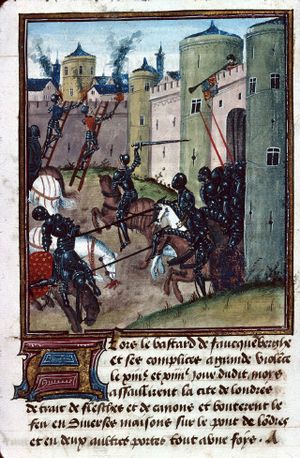 Lors le bastard de faucquẽberghe
et ses complices a grande violẽce
le xiiiͤ et xiiiiͤ jour dudit moys
assaullirent la cite de londres
de trait de flesches et de canons et bouterent le
feu en diverses maisons sur le pont de lõdres
et en deux aultres portes tout a une foys. A